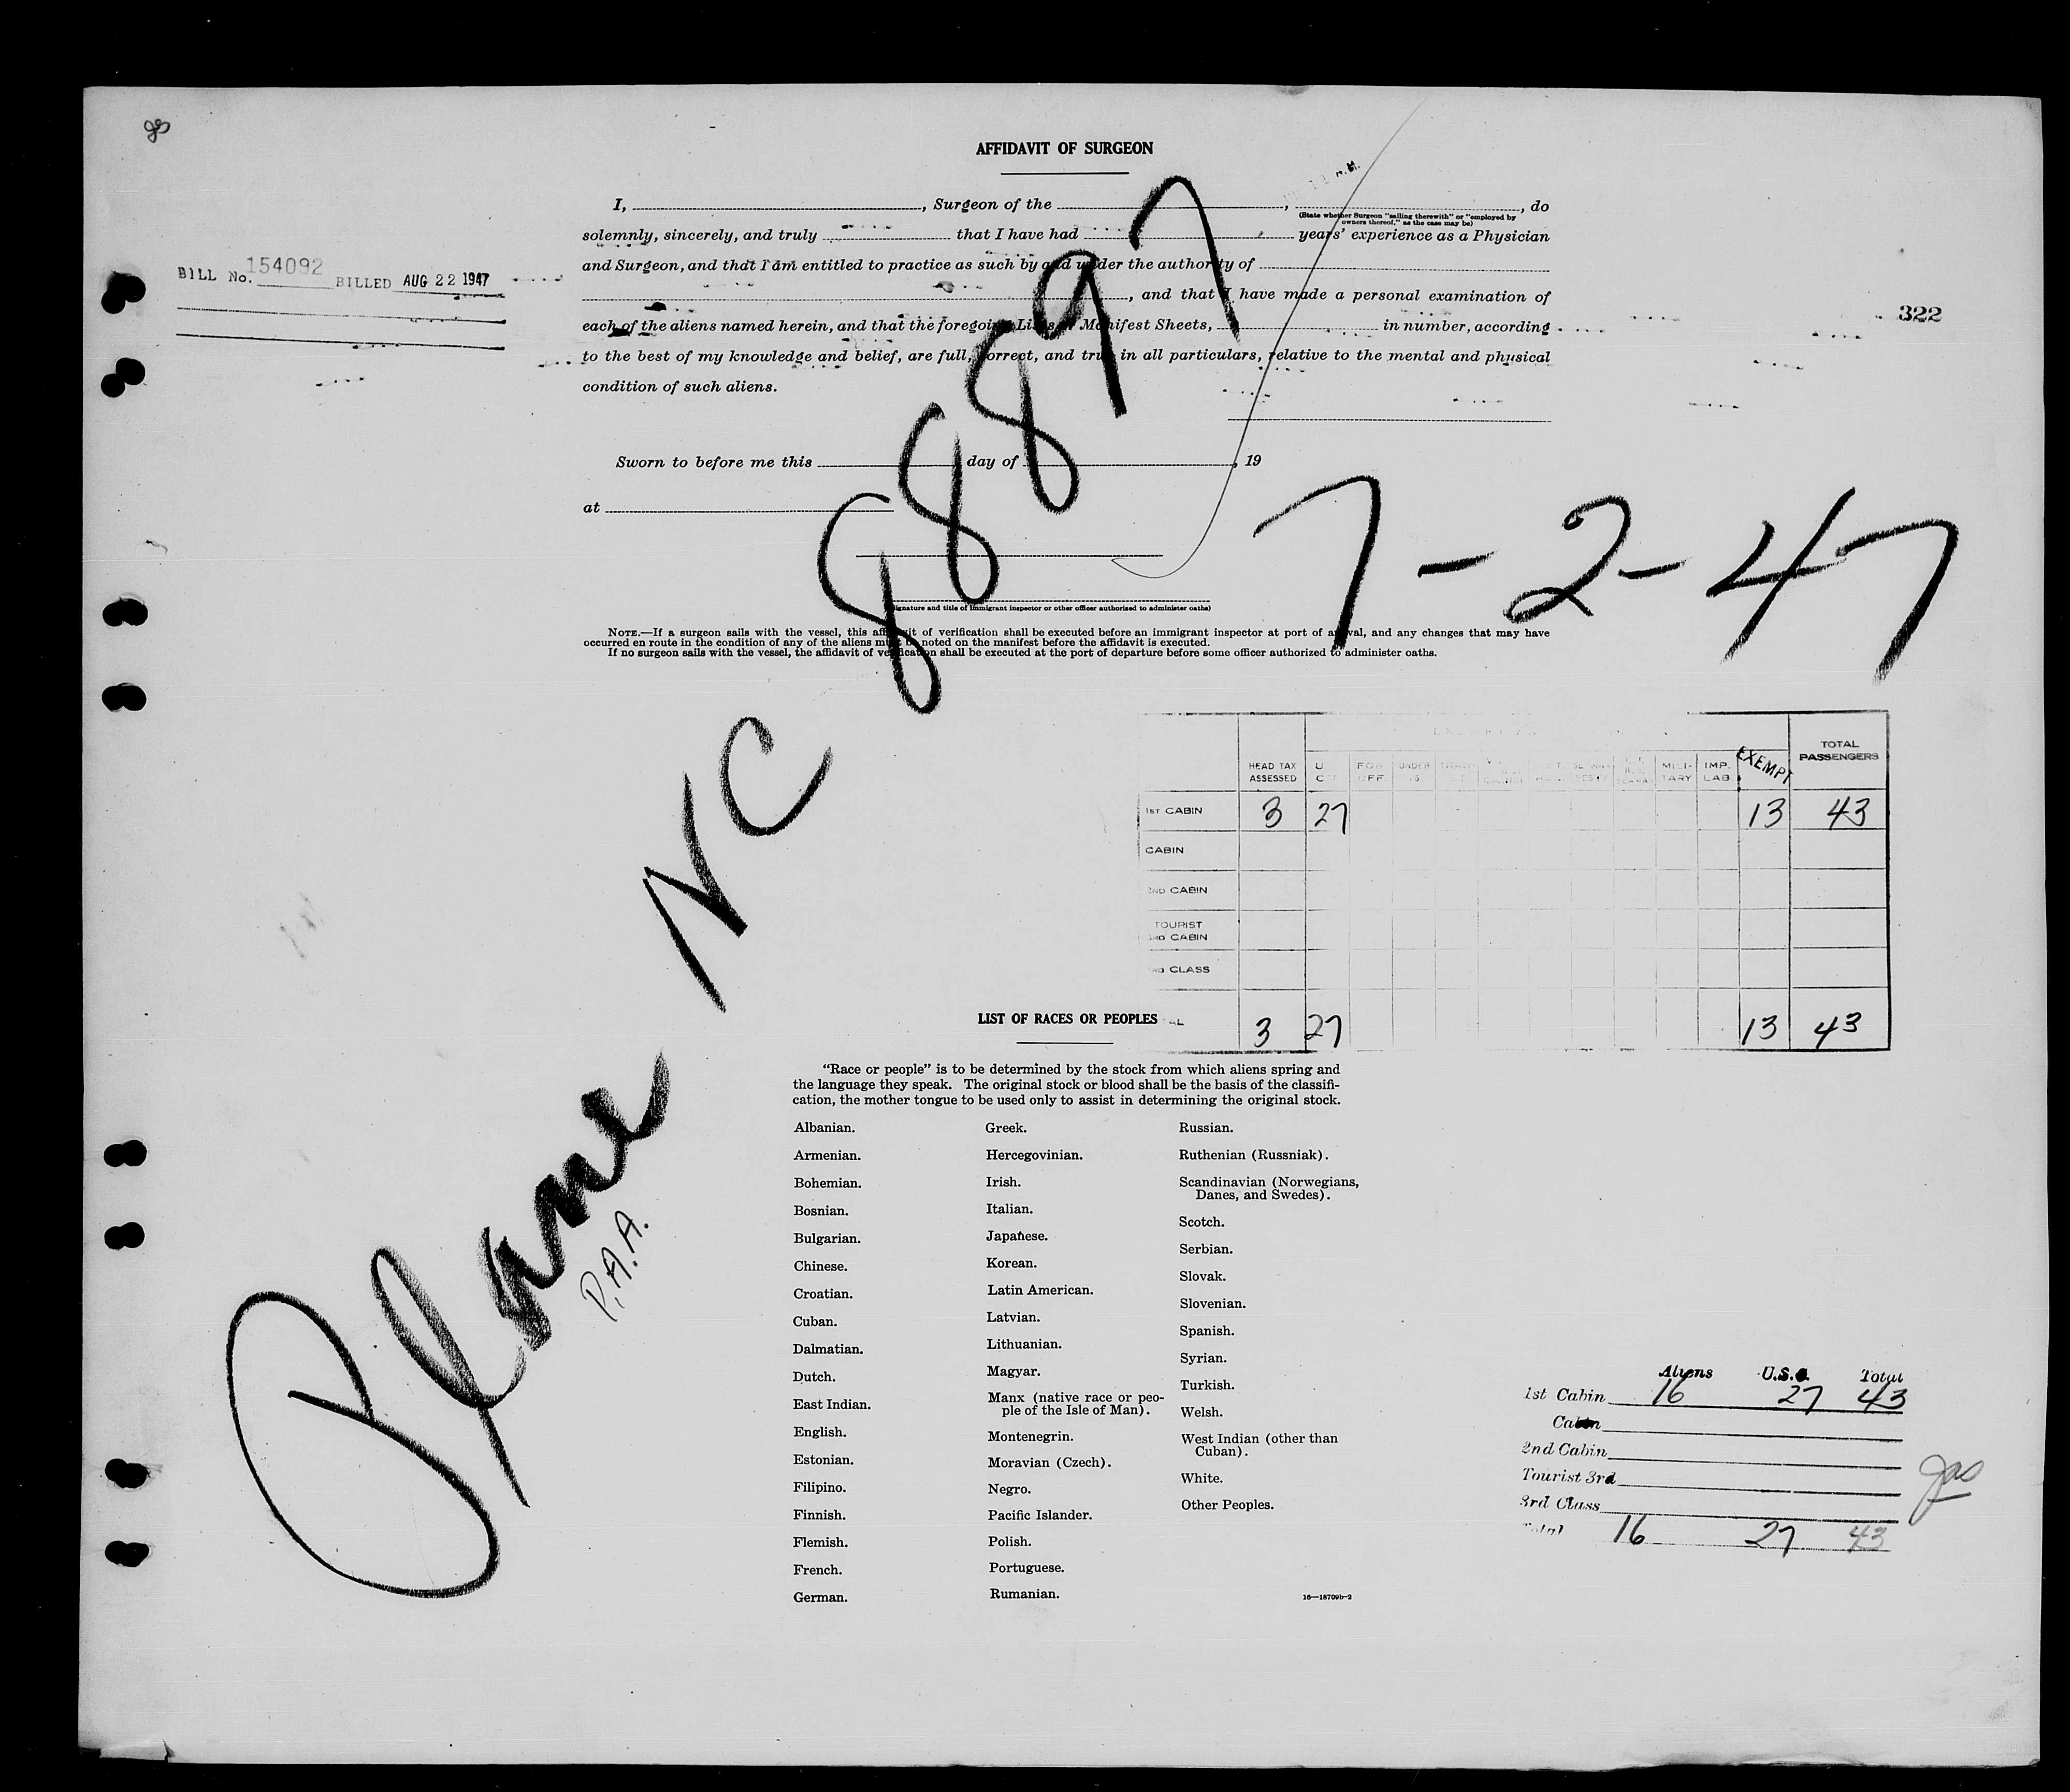 AFFIDAVIT OF SURGEON
I, , Surgeon of the , , do
(State whether Surgeon "sailing therewith" or "employed by
owners thereof," as the case may be)
solemnly, sincerely, and truly that I have had years' experience as a Physician
and Surgeon, and that I am entitled to practice as such by and under the authority of
, and that I have made a personal examination of
each of the aliens named herein, and that the foregoing Lists or Manifest Sheets, in number, according
to the best of my knowledge and belief, are full, correct, and true in all particulars, relative to the mental and physical
condition of such aliens.
BILL No. 154092 BILLED AUG 22 1947
322
Sworn to before me this day of , 19
at
(Signature and title of immigrant inspector or other officer authorized to administer oaths)
NOTE.—If a surgeon sails with the vessel, this affidavit of verification shall be executed before an immigrant inspector at port of arrival, and any changes that may have
occurred en route in the condition of any of the aliens must be noted on the manifest before the affidavit is executed.
If no surgeon sails with the vessel, the affidavit of verification shall be executed at the port of departure before some officer authorized to administer oaths.
Plane NC 88897
P.A.A.
7-2-47
HEAD TAX ASSESSED U C FOR OFF UNDER 16 MILITARY IMP. LAB. EXEMPT TOTAL PASSENGERS
1ST CABIN 3 27 13 43
CABIN
2ND CABIN
TOURIST
3RD CABIN
CLASS
3 27 13 43
LIST OF RACES OR PEOPLES
"Race or people" is to be determined by the stock from which aliens spring and
the language they speak. The original stock or blood shall be the basis of the classifi-
cation, the mother tongue to be used only to assist in determining the original stock.
Albanian.
Armenian.
Bohemian.
Bosnian.
Bulgarian.
Chinese.
Croatian.
Cuban.
Dalmatian.
Dutch.
East Indian.
English.
Estonian.
Filipino.
Finnish.
Flemish.
French.
German.
Greek.
Hercegovinian.
Irish.
Italian.
Japanese.
Korean.
Latin American.
Latvian.
Lithuanian.
Magyar.
Manx (native race or peo-
ple of the Isle of Man).
Montenegrin.
Moravian (Czech).
Negro.
Pacific Islander.
Polish.
Portuguese.
Rumanian.
Russian.
Ruthenian (Russniak).
Scandinavian (Norwegians,
Danes, and Swedes).
Scotch.
Serbian.
Slovak.
Slovenian.
Spanish.
Syrian.
Turkish.
Welsh.
West Indian (other than
Cuban).
White.
Other Peoples.
16—18709b-2
Aliens U.S.C. Total
1st Cabin 16 27 43
Cabin
2nd Cabin
Tourist 3rd
3rd Class
Total 16 27 43